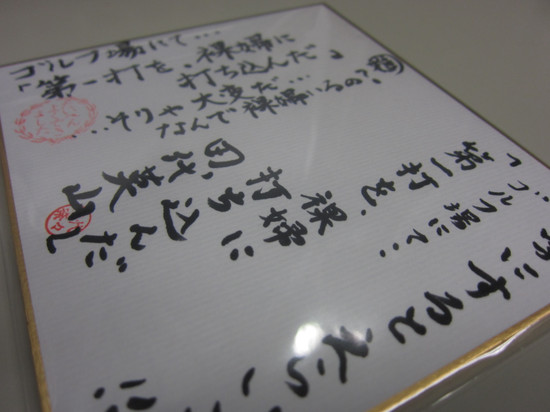 ゴルフ場にて…
「第一打を、裸婦に
打ち込んだ」
…そりゃ大変だ…
なんで裸婦いるの?
「ゴルフ場にて、
第一打を、
裸婦に
打ち込んだ」
田代英山
にするとえらい